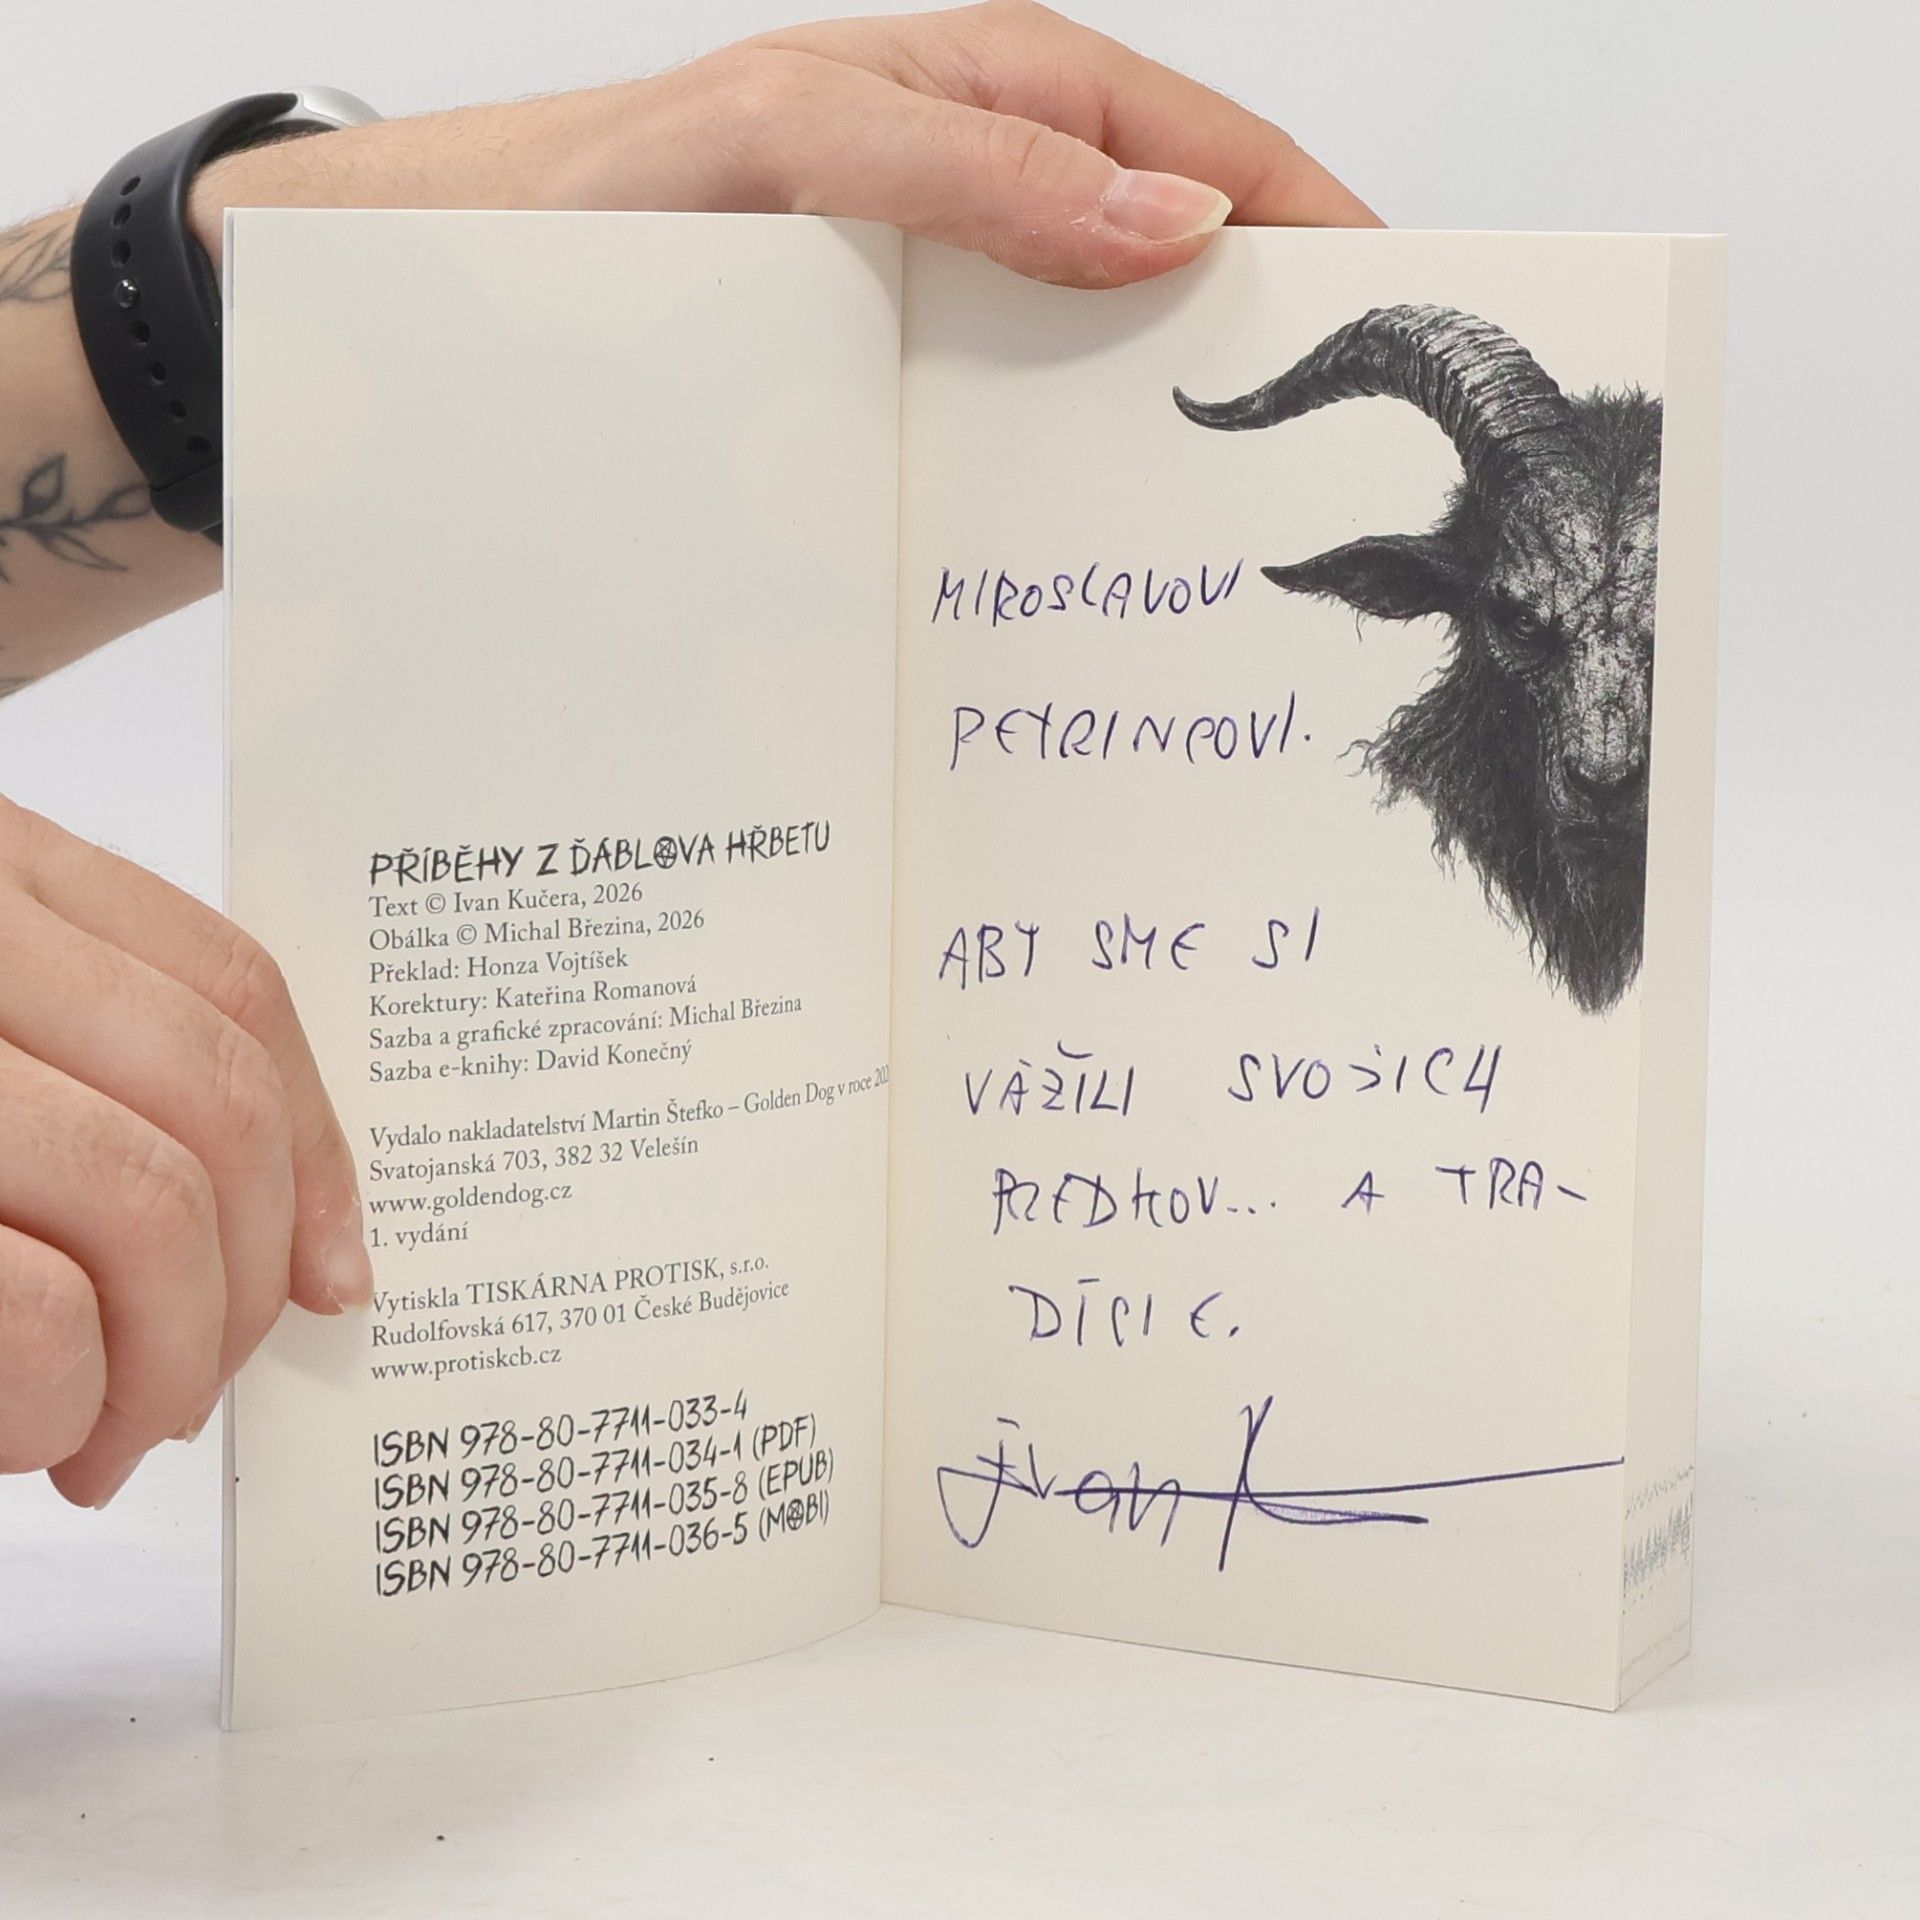 PŘÍBĚHY Z ĎÁBLOVA HŘBETU
Text © Ivan Kučera, 2026
Obálka © Michal Březina, 2026
Překlad: Honza Vojtíšek
Korektury: Kateřina Romanová
Sazba a grafické zpracování: Michal Březina
Sazba e-knihy: David Konečný
Vydalo nakladatelství Martin Štefko – Golden Dog v roce
Svatojanská 703, 382 32 Velešín
www.goldendog.cz
1. vydání
Vytiskla TISKÁRNA PROTISK, s.r.o.
Rudolfovská 617, 370 01 České Budějovice
www.protiskcb.cz
ISBN 978-80-7711-033-4
ISBN 978-80-7711-034-1 (PDF)
ISBN 978-80-7711-035-8 (EPUB)
ISBN 978-80-7711-036-5 (MOBI)
MIROSLAVOVI
PETRINCOVI.
ABY SME SI
VÁŽILI SVOJICH
PREDKOV... A TRA-
DÍCIE.
Ivan K